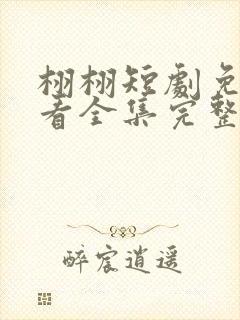 栩栩短劇免
看全集完整
醉宸逍遥